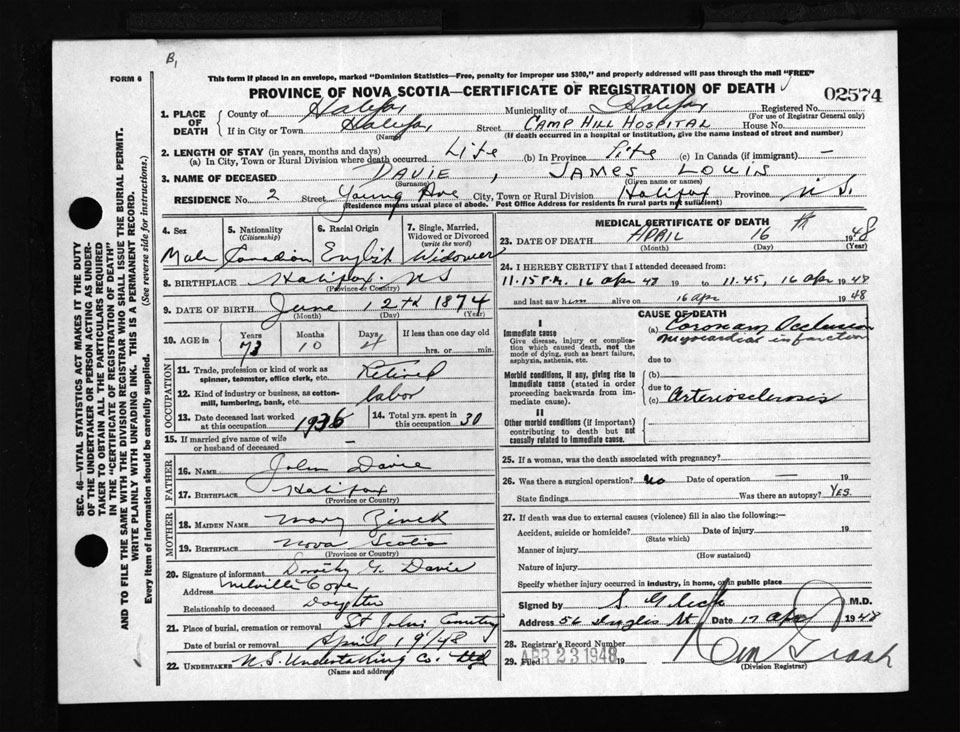 B,
FORM 6
This form if placed in an envelope, marked "Dominion Statistics—Free, penalty for improper use $300," and properly addressed will pass through the mail "FREE"
PROVINCE OF NOVA SCOTIA—CERTIFICATE OF REGISTRATION OF DEATH
02574
1. PLACE OF DEATH
County of Halifax Municipality of Halifax Registered No.
(For use of Registrar General only)
If in City or Town Halifax Street CAMP HILL HOSPITAL House No.
(Name) (If death occurred in a hospital or institution, give the name instead of street and number)
2. LENGTH OF STAY (in years, months and days)
(a) In City, Town or Rural Division where death occurred Life (b) In Province Life (c) In Canada (if immigrant) —
3. NAME OF DECEASED DAVIE, JAMES LOUIS
(Surname) (Given name or names)
RESIDENCE No. 2 Street Young Ave City, Town or Rural Division Halifax Province N S.
(Residence means usual place of abode. Post Office Address for residents in rural parts not sufficient)
4. Sex Male
5. Nationality (Citizenship) Canadian
6. Racial Origin English
7. Single, Married, Widowed or Divorced (write the word) Widower
8. BIRTHPLACE Halifax. NS
(Province or Country)
9. DATE OF BIRTH June 12th 1874
(Month) (Day) (Year)
10. AGE in Years 73 Months 10 Days 4 If less than one day old
hrs. or min.
OCCUPATION
11. Trade, profession or kind of work as spinner, teamster, office clerk, etc. Retired
12. Kind of industry or business, as cotton-mill, lumbering, bank, etc. labor
13. Date deceased last worked at this occupation 1936
14. Total yrs. spent in this occupation 30
15. If married give name of wife or husband of deceased —
FATHER
16. NAME John Davie
17. BIRTHPLACE Halifax
(Province or Country)
MOTHER
18. MAIDEN NAME Mary Zinck
19. BIRTHPLACE Nova Scotia
(Province or Country)
20. Signature of informant Dorothy G. Davie
Address Melville Cove
Relationship to deceased Daughter
21. Place of burial, cremation or removal St Johns Cemetery
Date of burial or removal April 19/48
22. UNDERTAKER N.S. Undertaking Co. Ltd
(Name and address)
MEDICAL CERTIFICATE OF DEATH
23. DATE OF DEATH APRIL 16th 1948
(Month) (Day) (Year)
24. I HEREBY CERTIFY that I attended deceased from:
11.15 P.M. 16 apr 48 19 to 11.45, 16 apr 1948
and last saw him alive on 16 apr 1948
CAUSE OF DEATH
I
Immediate cause
Give disease, injury or complication which caused death, not the mode of dying, such as heart failure, asphyxia, asthenia, etc.
(a) Coronary Occlusion
myocardial infarction
due to
Morbid conditions, if any, giving rise to immediate cause (stated in order proceeding backwards from immediate cause).
(b)
due to
(c) Arteriosclerosis
II
Other morbid conditions (if important) contributing to death but not causally related to immediate cause.
25. If a woman, was the death associated with pregnancy?
26. Was there a surgical operation? No Date of operation — 19
State findings Was there an autopsy? Yes.
27. If death was due to external causes (violence) fill in also the following:
Accident, suicide or homicide? Date of injury 19
(State which)
Manner of injury
(How sustained)
Nature of injury
Specify whether injury occurred in industry, in home, or in public place
Signed by M.D.
Address 56 Inglis St Date 17 apr 1948
28. Registrar's Record Number
29. Filed APR 23 1948 19
(Division Registrar)
SEC. 46—VITAL STATISTICS ACT MAKES IT THE DUTY
OF THE UNDERTAKER OR PERSON ACTING AS UNDER-
TAKER TO OBTAIN ALL THE PARTICULARS REQUIRED
IN THE "CERTIFICATE OF REGISTRATION OF DEATH"
AND TO FILE THE SAME WITH THE DIVISION REGISTRAR WHO SHALL ISSUE THE BURIAL PERMIT.
WRITE PLAINLY WITH UNFADING INK. THIS IS A PERMANENT RECORD.
Every item of information should be carefully supplied. (See reverse side for instructions.)